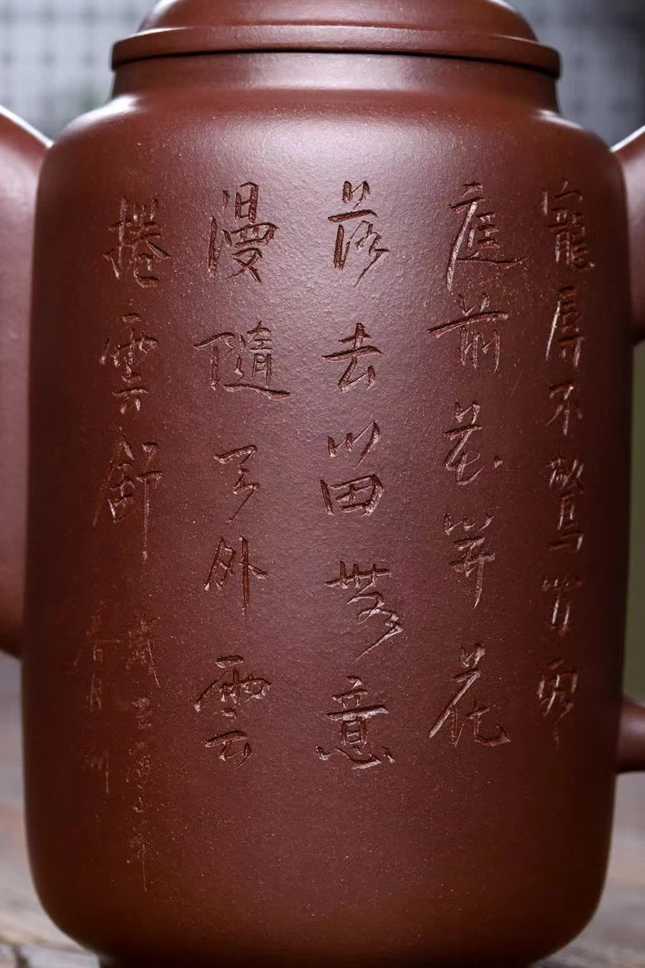 寵辱不驚閒看
庭前花開花
落去留無意
漫隨天外雲
捲雲舒
歲
春月